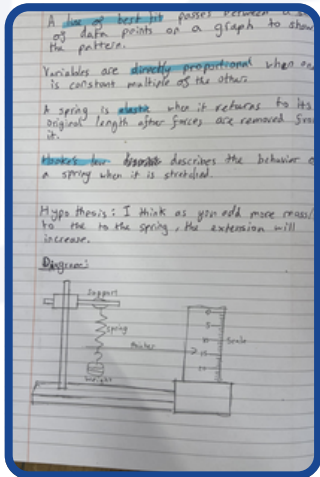 A line of best fit passes between a s
of data points on a graph to show
the pattern.
Variables are directly proportional when one
is constant multiple of the other.
A spring is elastic when it returns to its
original length after forces are removed from
it.
Hooke's law describes the behavior o
a spring when it is stretched.
Hypothesis: I think as you add more mass
to the to the spring, the extension will
increase.
Diagram:
Support
spring
Pointer
Scale
weight
0
5
10
15
20